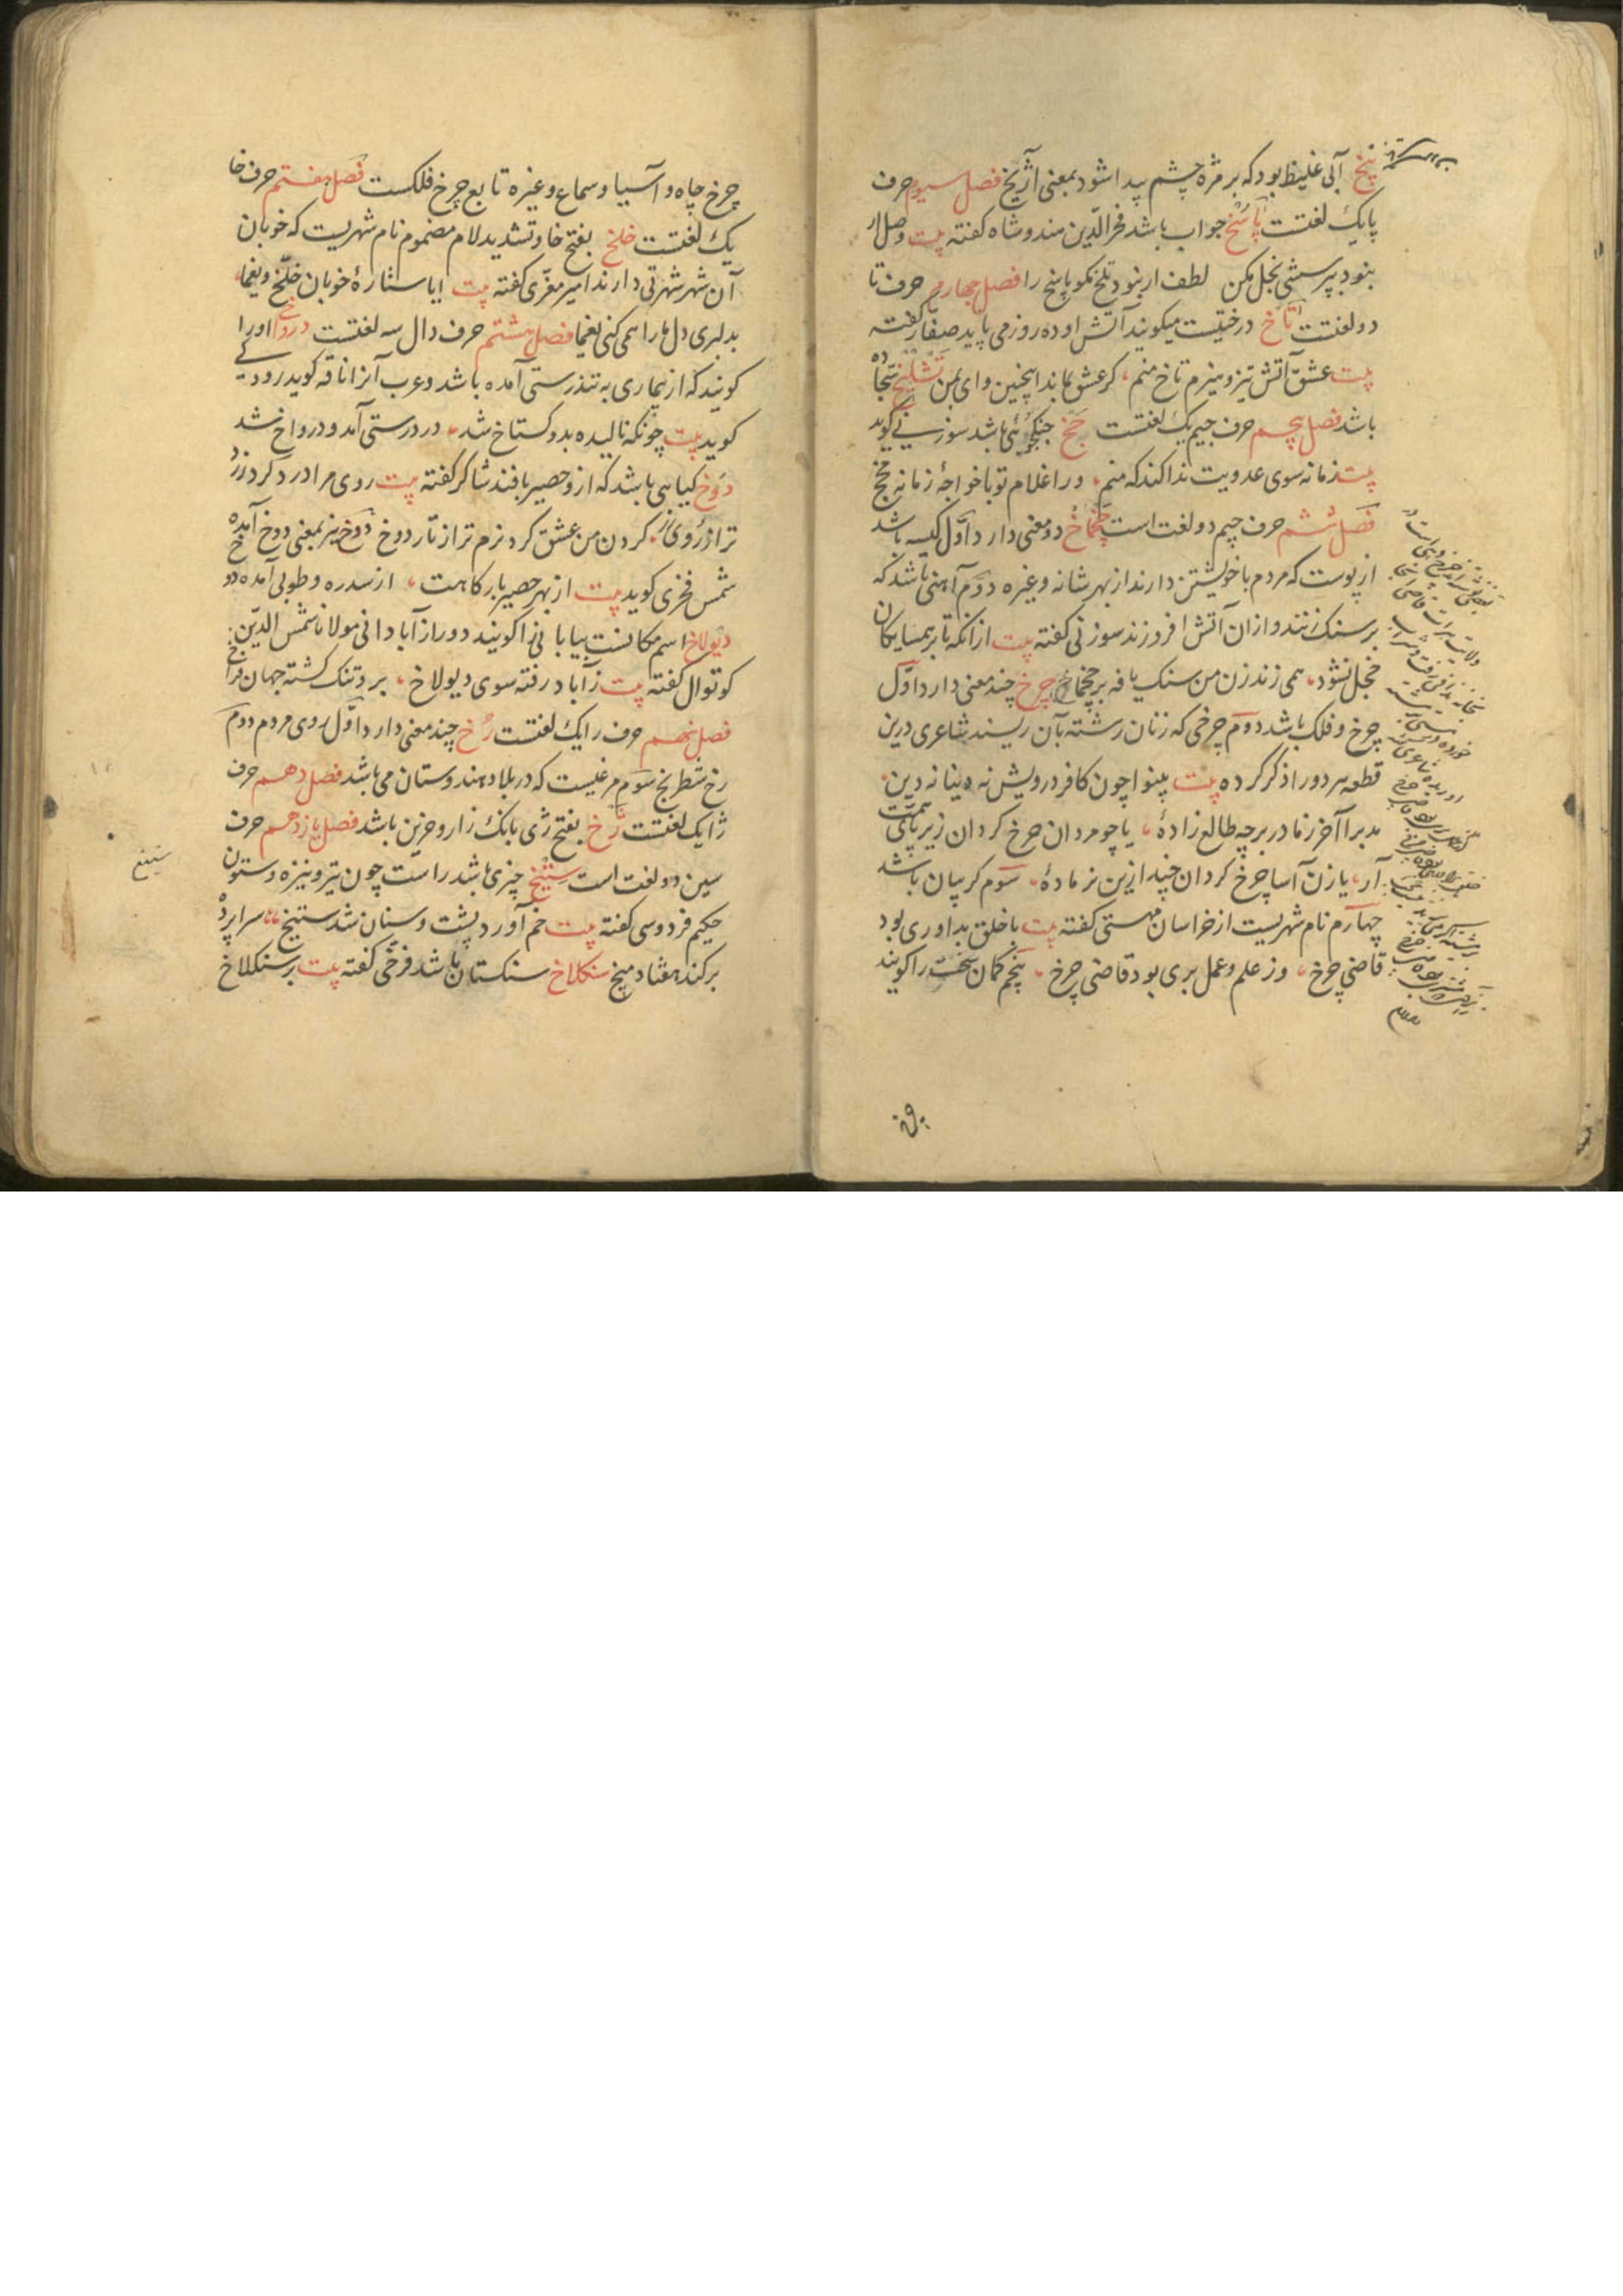 پیخ آبی غلیظ بود که بر مژه چشم پیدا شود بمعنی آژیخ فصل سیوم حرف
پا یک لغتست پاسخ جواب باشد فخر الدّین هندوشاه کفته بیت وصل ار
بنود بپرسشی بخل مکن لطف ار بنود تلخ مکو پاسخ را فصل چهارم حرف تا
دو لغتست تاخ درختیست میکویند آتش او ده روز می پاید صفّار کفته
بیت عشق آتش تیز و هیزم تاخ منم کر عشق بماند اینچنین وای بمن تشلیخ سجّاده
باشد فصل پنجم حرف جیم یک لغتست جخ جنکجوئی باشد سوزنی کوید
بیت زمانه سوی عدویت ندا کند که منم ورا غلام تو با خواجهٔ زمانه مجخ
فصل ششم حرف چیم دو لغت است چخماخ دو معنی دارد اوّل کیسه باشد
از پوست که مردم با خویشتن دارند از بهر شانه و غیره دوّم آهنی باشد که
بر سنک زنند و ازان آتش افروزند سوزنی کفته بیت از انکه تا بر همسایکان
خجل نشود همی زند زن من سنک یافه بر چخماخ چرخ چند معنی دارد اوّل
چرخ و فلک باشد دوم چرخی که زنان رشته بآن ریسند شاعری درین
قطعه هر دو را ذکر کرده بیت بینوا چون کافر درویش نه دنیا نه دین
مدبرا آخر ز مادر بر چه طالع زادهٔ یا چو مردان چرخ کردان زیر پای همّت
آر یا زن آسا چرخ کردان چند ازین نر مادهٔ سوم کریبان باشد
چهارم نام شهریست از خراسان مهستی کفته بیت با خلق بداوری بود
قاضی چرخ وز علم و عمل بری بود قاضی چرخ پنجم کمان سخت را کویند
چرخ چاه و آسیا و سماع و غیره تابع چرخ فلکست فصل هفتم حرف خا
یک لغتست خلخ بفتح خا و تشدید لام مضموم نام شهریست که خوبان
آن شهر شهرتی دارند امیر معزّی کفته بیت ایا ستارهٔ خوبان خلّخ و یغما
بدلبری دل ما را همی کنی یغما فصل هشتم حرف دال سه لغتست درواخ اورا
کویند که از بیماری به تندرستی آمده باشد و عرب آنرا ناقه کوید رودکی
کوید بیت چونکه نالیده بدو کستاخ شد در درستی آمد و درواخ شد
دوخ کیاهی باشد که ازو حصیر بافند شاکر کفته بیت روی مرا درد کرد زرد
تر از زر کردن من عشق کرد نرم تر از تار دوخ دوّخ نیز بمعنی دوخ آمده
شمس فخری کوید بیت از بهر حصیر بارکاهت از سدره و طوبی آمده دوخ
دیولاخ اسم مکانست بیابانی را کویند دور از آبادانی مولانا شمس الدّین
کوتوال کفته بیت ز آباد رفته سوی دیولاخ برو تنک کشته جهان فراخ
فصل نهم حرف را یک لغتست رخ چند معنی دارد اوّل روی مردم دوم
رخ شطرنج سوم مرغیست که در بلاد هندوستان می باشد فصل دهم حرف
ژا یک لغتست ژخ بفتح ژی بانک زار و حزین باشد فصل یازدهم حرف
سین دو لغت است ستیخ چیزی باشد راست چون تیر و نیزه و ستون
حکیم فردوسی کفته بیت خم آورد پشت و سنان شد ستیخ سراپرده
برکند هفتاد میخ سنکلاخ سنکستان باشد فرخی کفته بیت بر سنکلاخ